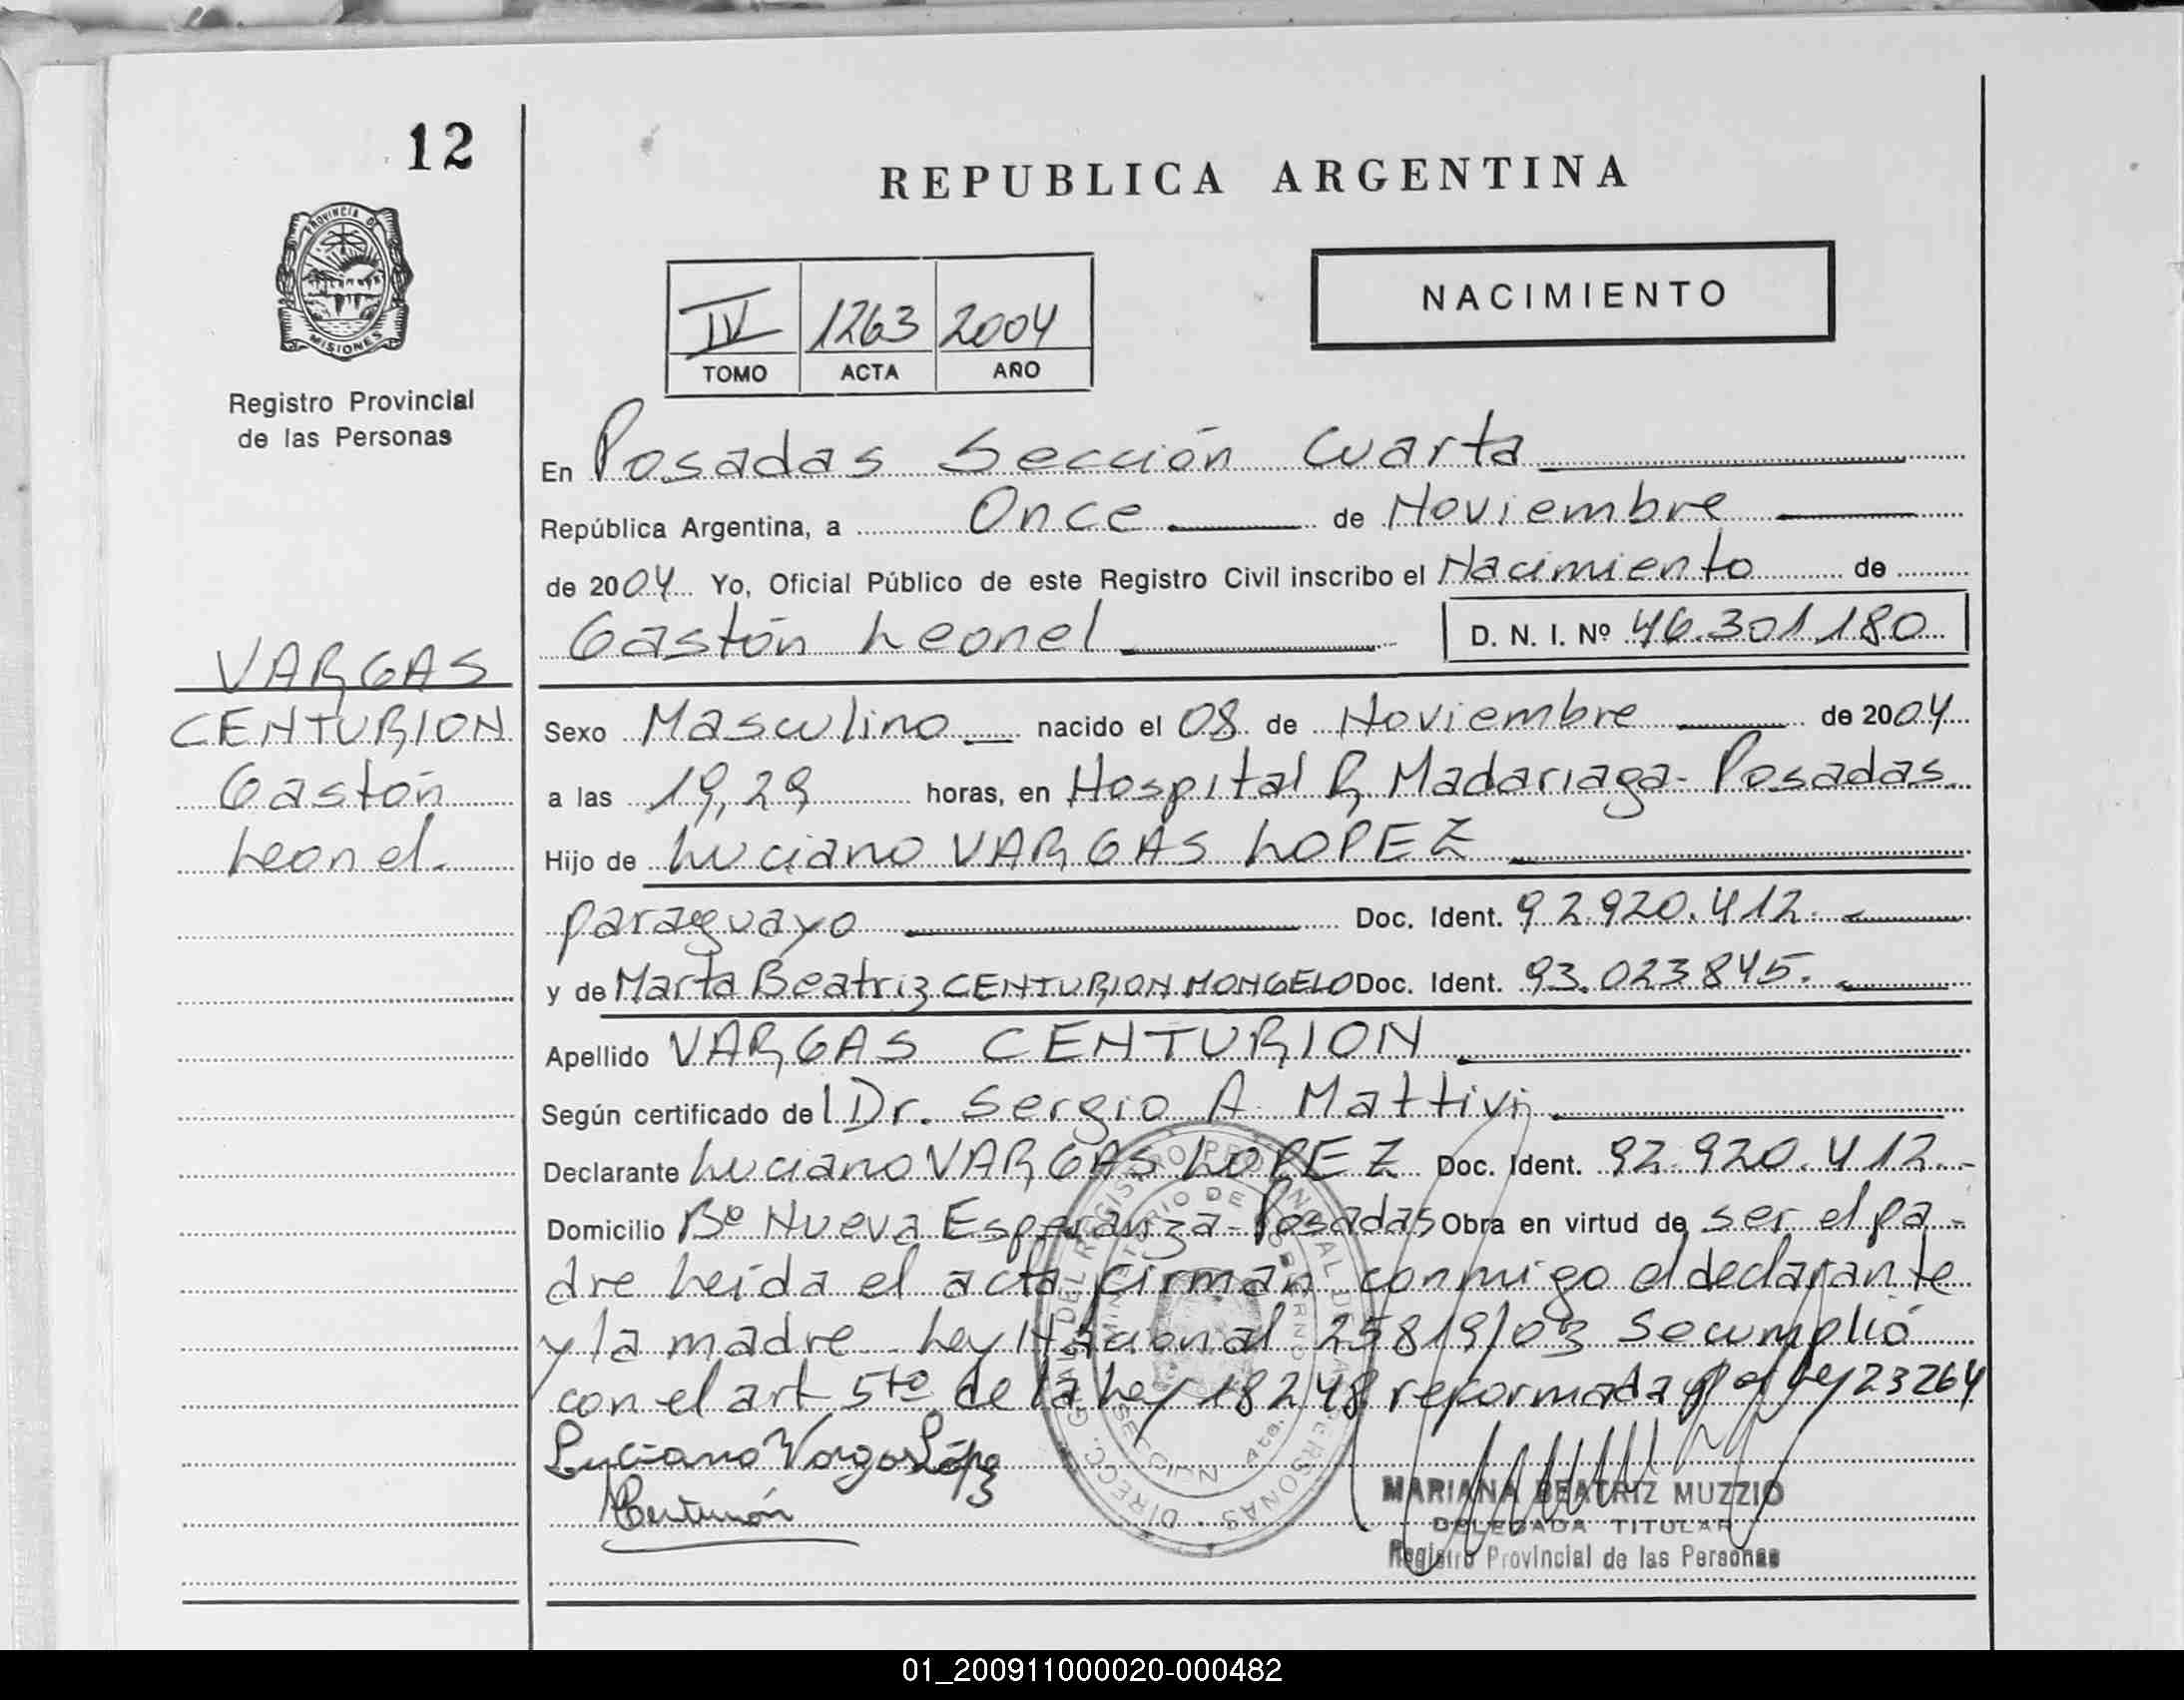 12
REPUBLICA ARGENTINA
PROVINCIA DE
MISIONES
Registro Provincial
de las Personas
IV 1263 2004
TOMO ACTA AÑO
NACIMIENTO
En Posadas Sección Cuarta
República Argentina, a Once de Noviembre
de 2004 Yo, Oficial Público de este Registro Civil inscribo el Nacimiento de
Gastón Leonel D. N. I. Nº 46.301.180
VARGAS
CENTURION
Gastón
Leonel.
Sexo Masculino nacido el 08 de Noviembre de 2004
a las 19,29 horas, en Hospital R. Madariaga - Posadas
Hijo de Luciano VARGAS LOPEZ
paraguayo Doc. Ident. 92.920.412.
y de Marta Beatriz CENTURION MONGELO Doc. Ident. 93.023.845.
Apellido VARGAS CENTURION
Según certificado del Dr. Sergio A. Mattivi
Declarante Luciano VARGAS LOPEZ Doc. Ident. 92.920.412.-
Domicilio Bº Nueva Esperanza - Posadas Obra en virtud de ser el pa-
dre Leída el acta firman conmigo el declarante
y la madre Ley Nacional 25819/03 Se cumplió
con el art 5to de la Ley 18248 reformada p/ Ley 23264
Luciano Vargas López
Centurión
DIRECC. GRAL. DEL REGISTRO PROVINCIAL DE LAS PERSONAS
MINISTERIO DE GOBIERNO
SECCION 4ta.
MARIANA BEATRIZ MUZZIO
DELEGADA TITULAR
Registro Provincial de las Personas
01_200911000020-000482